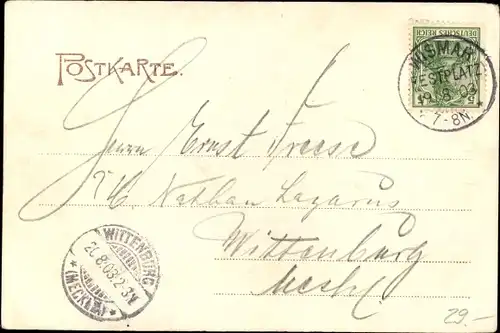 POSTKARTE.
DEUTSCHES REICH
5
WISMAR
FESTPLATZ
19.8.03
7-8N.
Herrn Ernst Freese
Nathan Lazarus
Wittenburg
Meckl.
WITTENBURG
20.8.03.2-3N
*(MECKLB)*
29.-